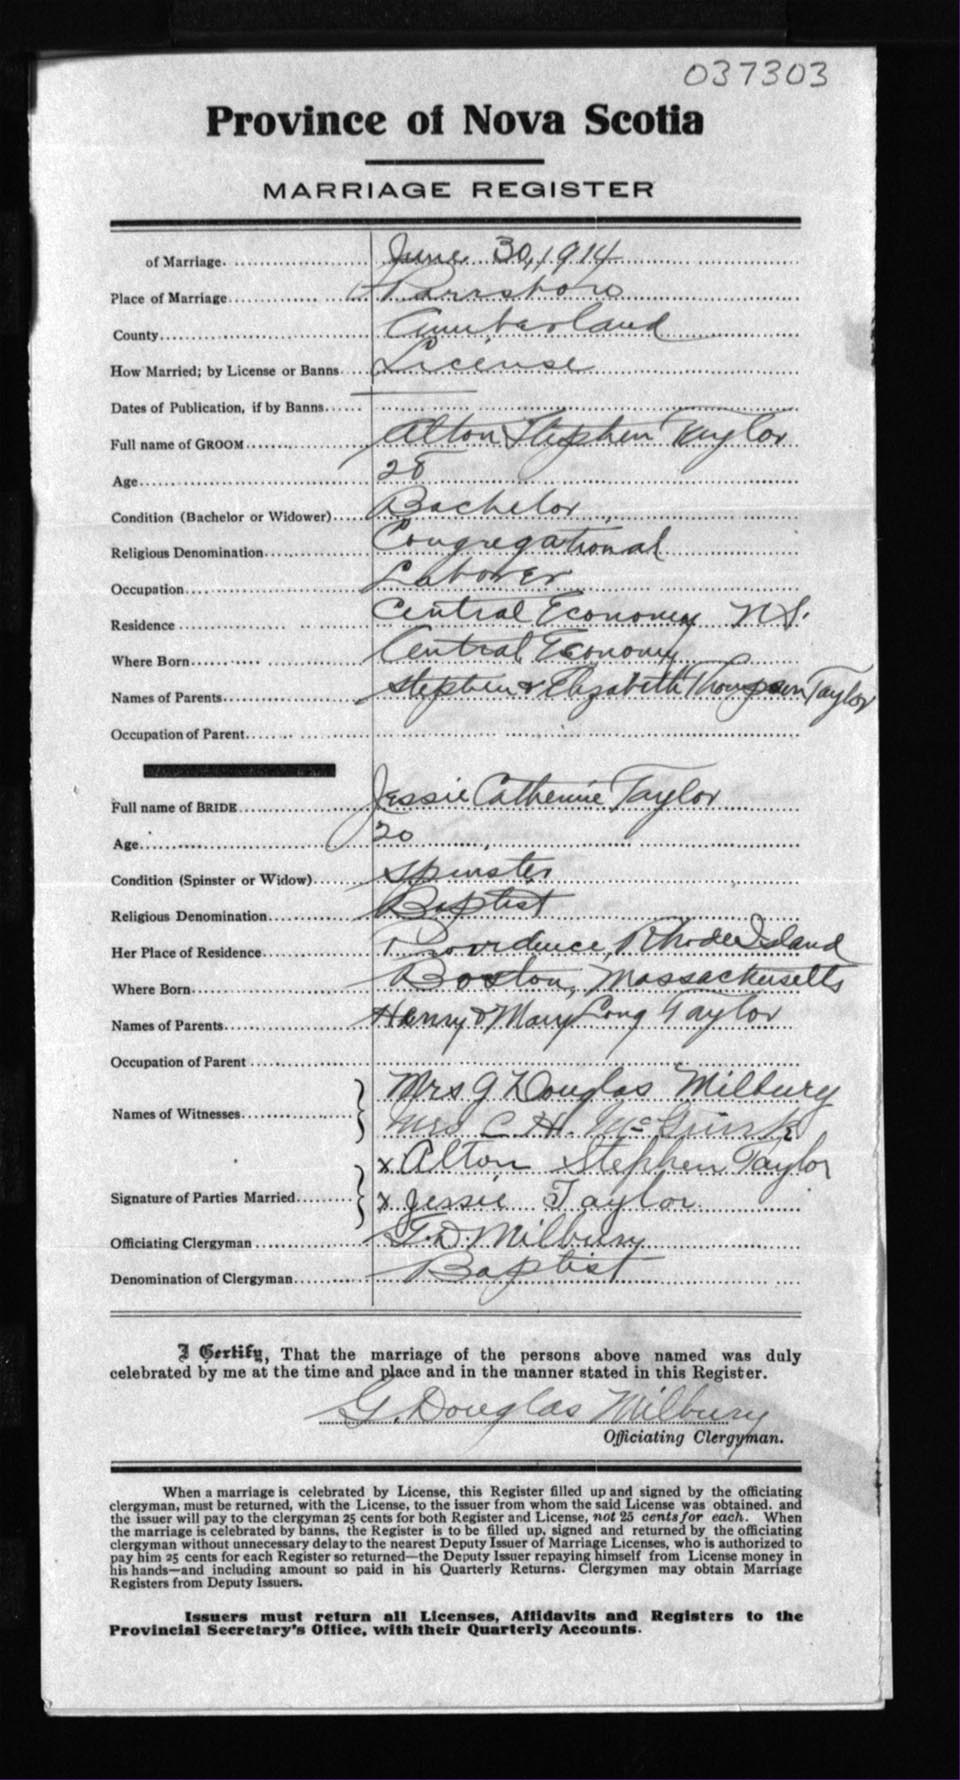 037303
Province of Nova Scotia
MARRIAGE REGISTER
of Marriage. June 30, 1914
Place of Marriage Parrsboro
County Cumberland
How Married; by License or Banns License
Dates of Publication, if by Banns
Full name of GROOM Alton Stephen Taylor
Age 28
Condition (Bachelor or Widower) Bachelor
Religious Denomination Congregational
Occupation Laborer
Residence Central Economy N.S.
Where Born Central Economy
Names of Parents Stephen & Elizabeth Thompson Taylor
Occupation of Parent
Full name of BRIDE Jessie Catherine Taylor
Age 20
Condition (Spinster or Widow) Spinster
Religious Denomination Baptist
Her Place of Residence Providence, Rhode Island
Where Born Boston, Massachusetts
Names of Parents Henry & Mary Long Taylor
Occupation of Parent
Names of Witnesses Mrs G Douglas Milbury
Mrs C. H. Mc
Signature of Parties Married x Alton Stephen Taylor
x Jessie Taylor
Officiating Clergyman G. D. Milbury
Denomination of Clergyman Baptist
I Certify, That the marriage of the persons above named was duly
celebrated by me at the time and place and in the manner stated in this Register.
G. Douglas Milbury
Officiating Clergyman.
When a marriage is celebrated by License, this Register filled up and signed by the officiating
clergyman, must be returned, with the License, to the issuer from whom the said License was obtained. and
the issuer will pay to the clergyman 25 cents for both Register and License, not 25 cents for each. When
the marriage is celebrated by banns, the Register is to be filled up, signed and returned by the officiating
clergyman without unnecessary delay to the nearest Deputy Issuer of Marriage Licenses, who is authorized to
pay him 25 cents for each Register so returned—the Deputy Issuer repaying himself from License money in
his hands—and including amount so paid in his Quarterly Returns. Clergymen may obtain Marriage
Registers from Deputy Issuers.
Issuers must return all Licenses, Affidavits and Registers to the
Provincial Secretary's Office, with their Quarterly Accounts.